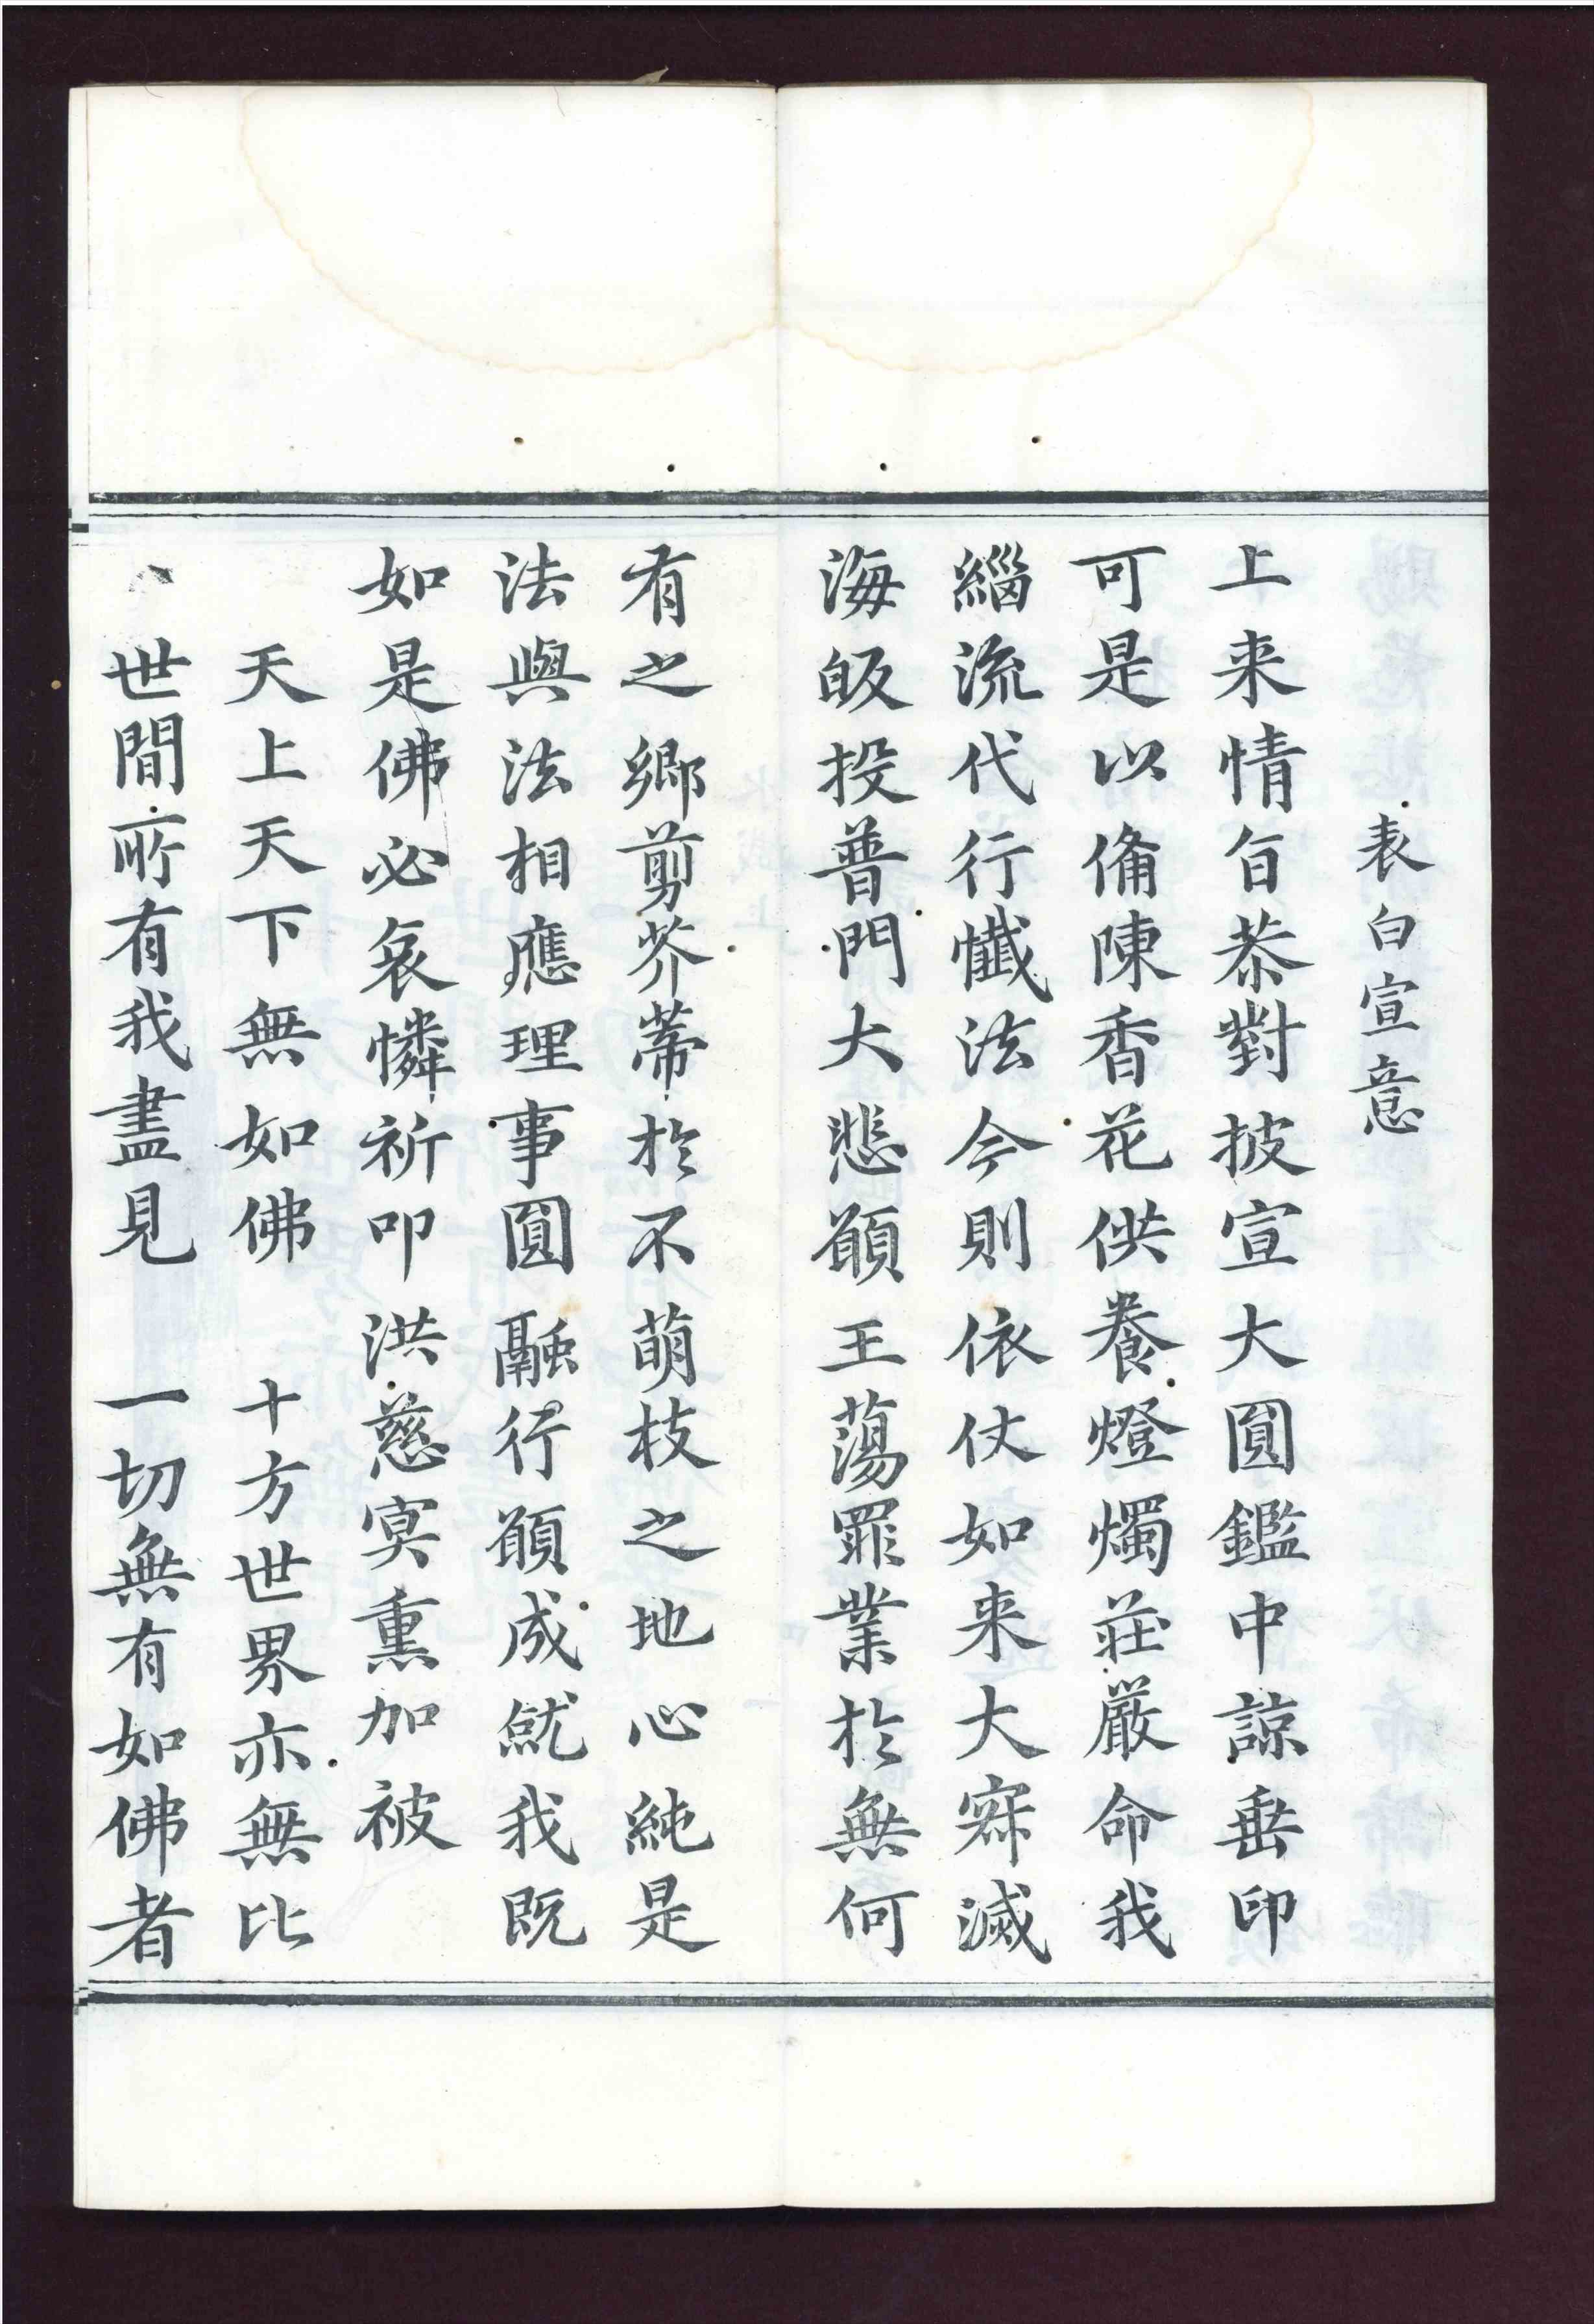 表白宣意
上来情旨恭對披宣大圓鑑中諒垂印
可是以俻陳香花供養燈燭莊嚴命我
緇流代行懺法今則依仗如来大寂滅
海皈投普門大悲願王蕩罪業於無何
有之鄉剪芥蒂於不萌枝之地心純是
法與法相應理事圓融行願成就我既
如是佛必哀憐祈叩洪慈冥熏加被
天上天下無如佛　十方世界亦無比
世間所有我盡見　一切無有如佛者